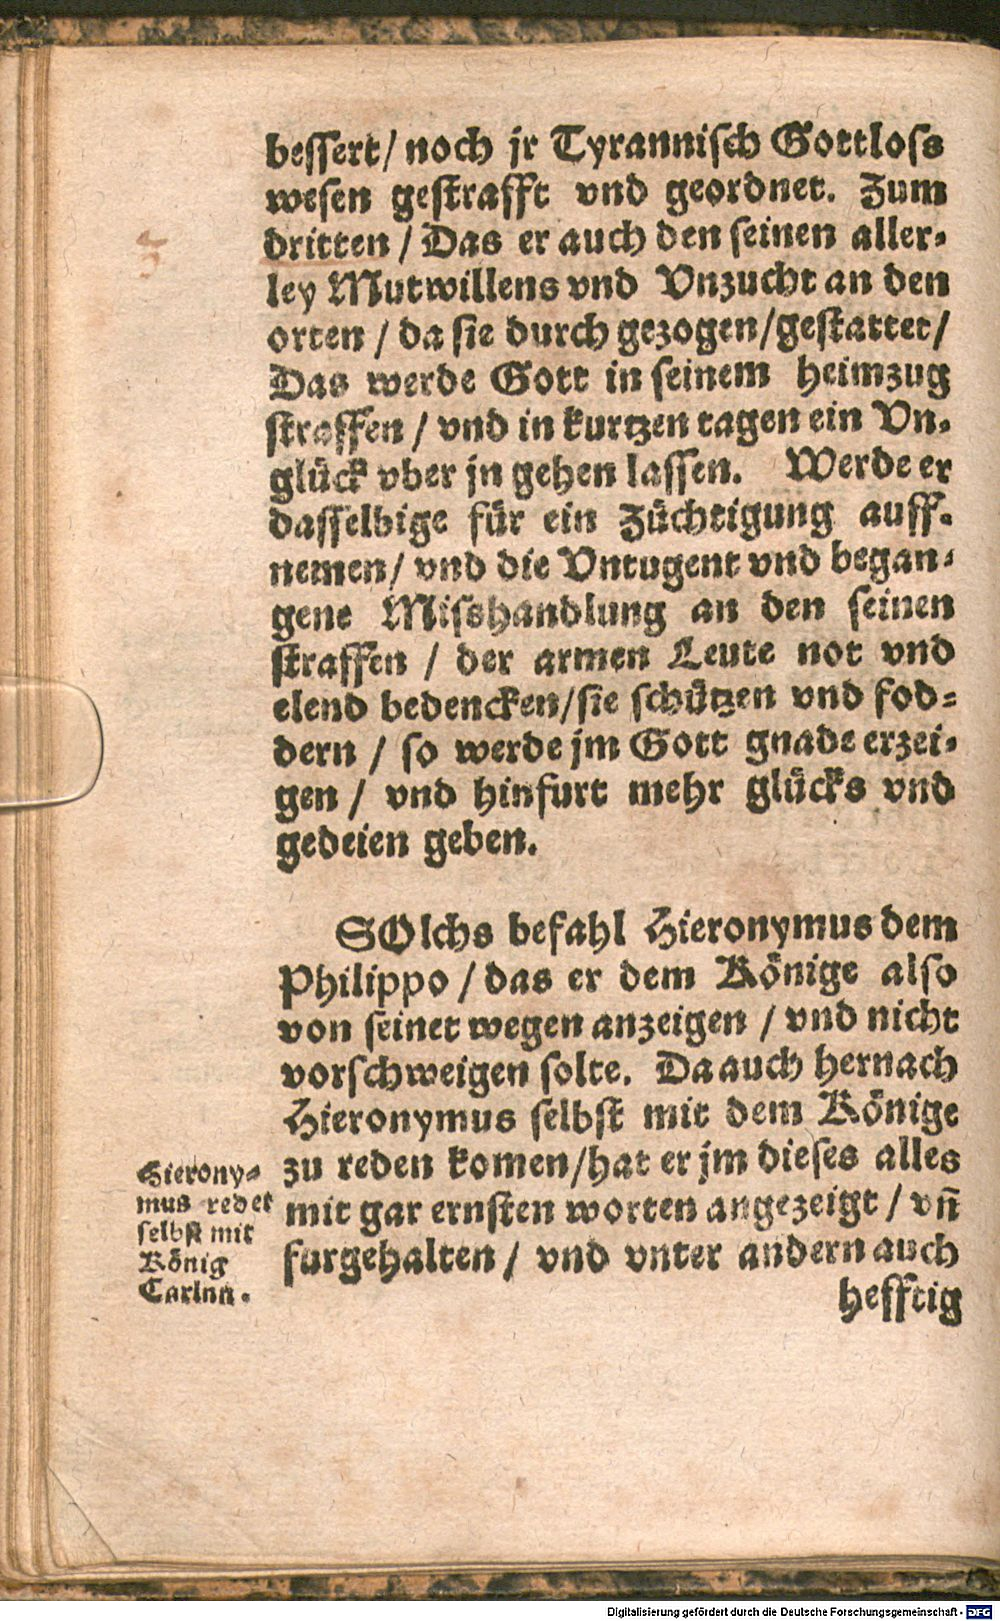 bessert/ noch jr Tyrannisch Gottloss
wesen gestrafft vnd geordnet. Zum
dritten / Das er auch den seinen aller-
ley Mutwillens vnd Vnzucht an den
orten / da sie durch gezogen/gestattet/
Das werde Gott in seinem heimzug
straffen / vnd in kurtzen tagen ein Vn-
glück vber jn gehen lassen. Werde er
dasselbige für ein Züchtigung auff-
nemen/ vnd die Vntugent vnd began-
gene Misshandlung an den seinen
straffen / der armen Leute not vnd
elend bedencken/sie schützen vnd fod-
dern / so werde jm Gott gnade erzei-
gen / vnd hinfurt mehr glücks vnd
gedeien geben.
SOlchs befahl Hieronymus dem
Philippo / das er dem Könige also
von seinet wegen anzeigen / vnd nicht
vorschweigen solte. Da auch hernach
Hieronymus selbst mit dem Könige
zu reden komen/hat er jm dieses alles
mit gar ernsten worten angezeigt / vñ
furgehalten / vnd vnter andern auch
hefftig
Hierony-
mus redet
selbst mit
König
Carlnn.
3
Digitalisierung gefördert durch die Deutsche Forschungsgemeinschaft - DFG